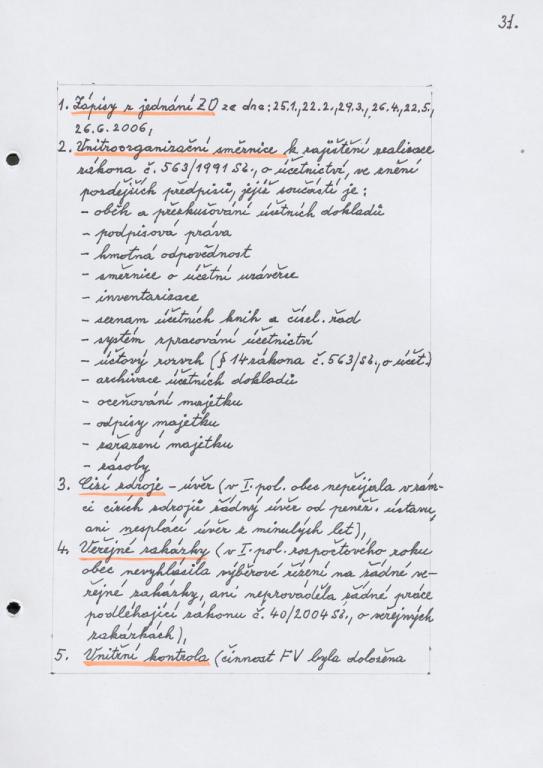 31.
1. Zápisy z jednání ZO ze dne: 25.1., 22.2., 29.3., 26.4., 22.5.,
26.6. 2006,
2. Vnitroorganizační směrnice k zajištění realizace
zákona č. 563/1991 Sb., o účetnictví, ve znění
pozdějších předpisů, jejíž součástí je:
- oběh a přezkušování účetních dokladů
- podpisová práva
- hmotná odpovědnost
- směrnice o účetní uzávěrce
- inventarizace
- seznam účetních knih a čísel. řad
- systém zpracování účetnictví
- účtový rozvrh (§ 14 zákona č. 563/Sb., o účet.)
- archivace účetních dokladů
- oceňování majetku
- odpisy majetku
- zařazení majetku
- zásoby
3. Cizí zdroje - úvěr (v I. pol. obec nepřijala v rám-
ci cizích zdrojů žádný úvěr od peněž. ústavu,
ani nesplácí úvěr z minulých let),
4. Veřejné zakázky (v I. pol. rozpočtového roku
obec nevyhlásila výběrové řízení na žádné ve-
řejné zakázky, ani neprováděla žádné práce
podléhající zákonu č. 40/2004 Sb., o veřejných
zakázkách),
5. Vnitřní kontrola (činnost FV byla doložena